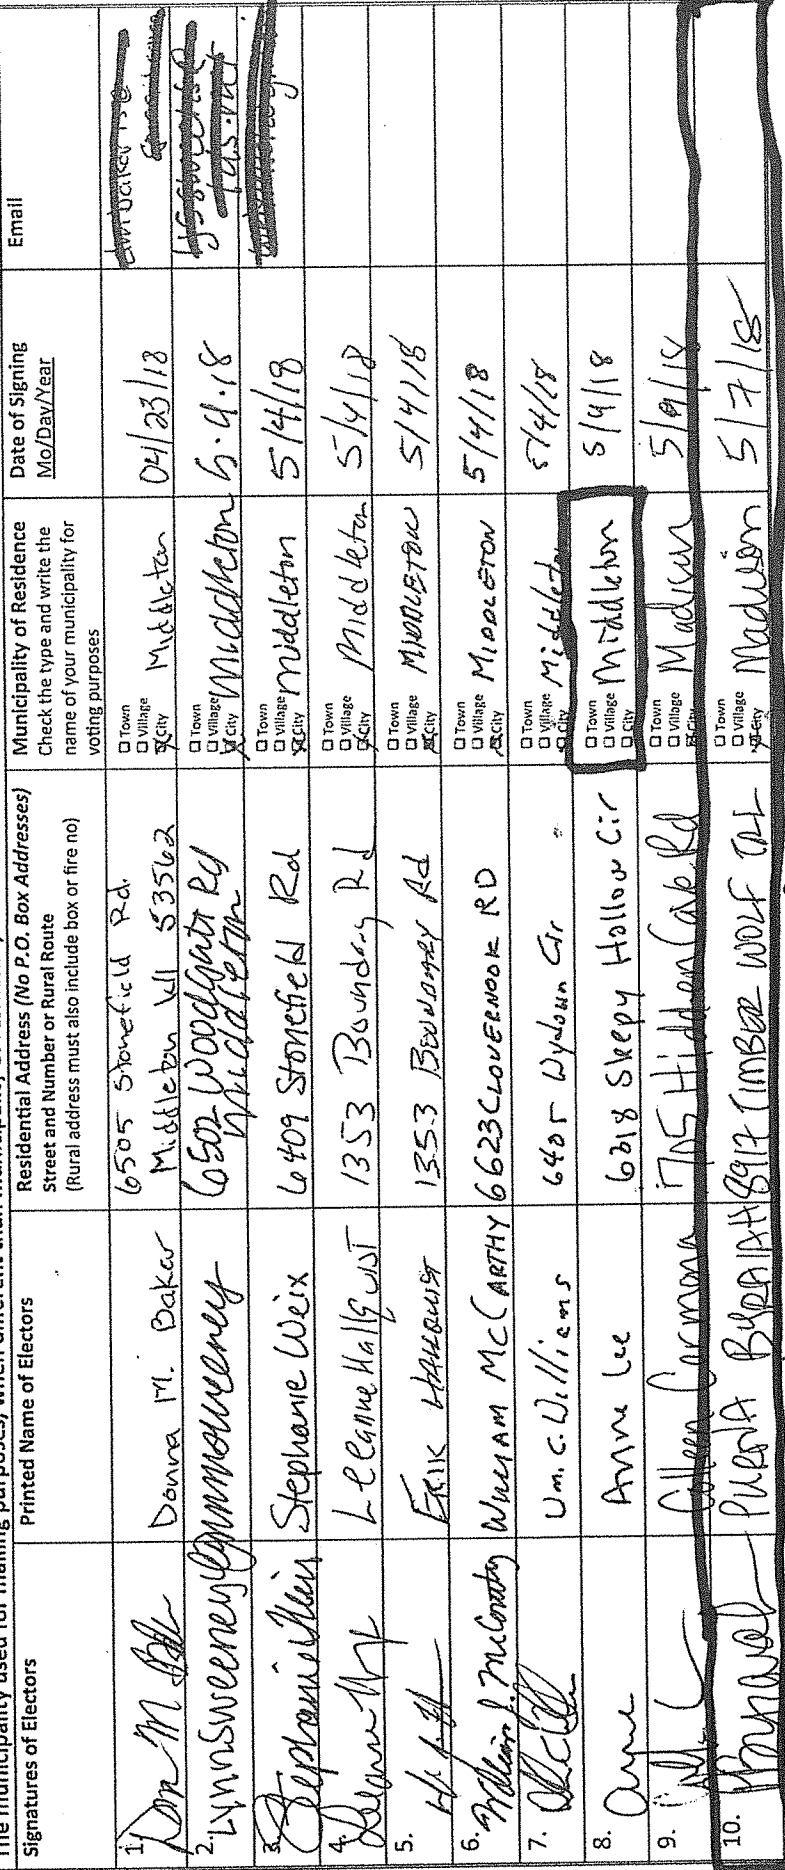 Signatures of Electors
Printed Name of Electors
Residential Address (No P.O. Box Addresses)
Street and Number or Rural Route
(Rural address must also include box or fire no)
Municipality of Residence
Check the type and write the
name of your municipality for
voting purposes
Date of Signing
Mo/Day/Year
Email
1.
Donna M. Baker
6505 Stonefield Rd.
Middleton WI 53562
☐ Town
☐ Village
City
Middleton
04/23/18
2.
Lynn Sweeney
Lynn M Sweeney
6502 Woodgate Rd
Middleton
☐ Town
☐ Village
City
Middleton
5.4.18
3.
Stephanie Weix
Stephanie Weix
6409 Stonefield Rd
☐ Town
☐ Village
City
middleton
5/4/18
4.
Leeanne Hallquist
1353 Boundary Rd
☐ Town
☐ Village
City
Middleton
5/4/18
5.
ERIK HALLQUIST
1353 BOUNDARY Rd
☐ Town
☐ Village
City
MIDDLETON
5/4/18
6.
William J. McCarthy
WILLIAM MCCARTHY
6623 CLOVERNOOK RD
☐ Town
☐ Village
City
MIDDLETON
5/4/18
7.
Wm. C. Williams
6405 Wydown Cir
☐ Town
☐ Village
City
Middleton
5/4/18
8.
Anne Lee
6218 Sleepy Hollow Cir
☐ Town
☐ Village
☐ City
Middleton
5/4/18
9.
Colleen Carmona
705 Hidden Cave Rd
☐ Town
☐ Village
City
Madison
10.
PURNA BYRAIAH
8917 TIMBER WOLF TRL
☐ Town
☐ Village
City
Madison
5/7/18